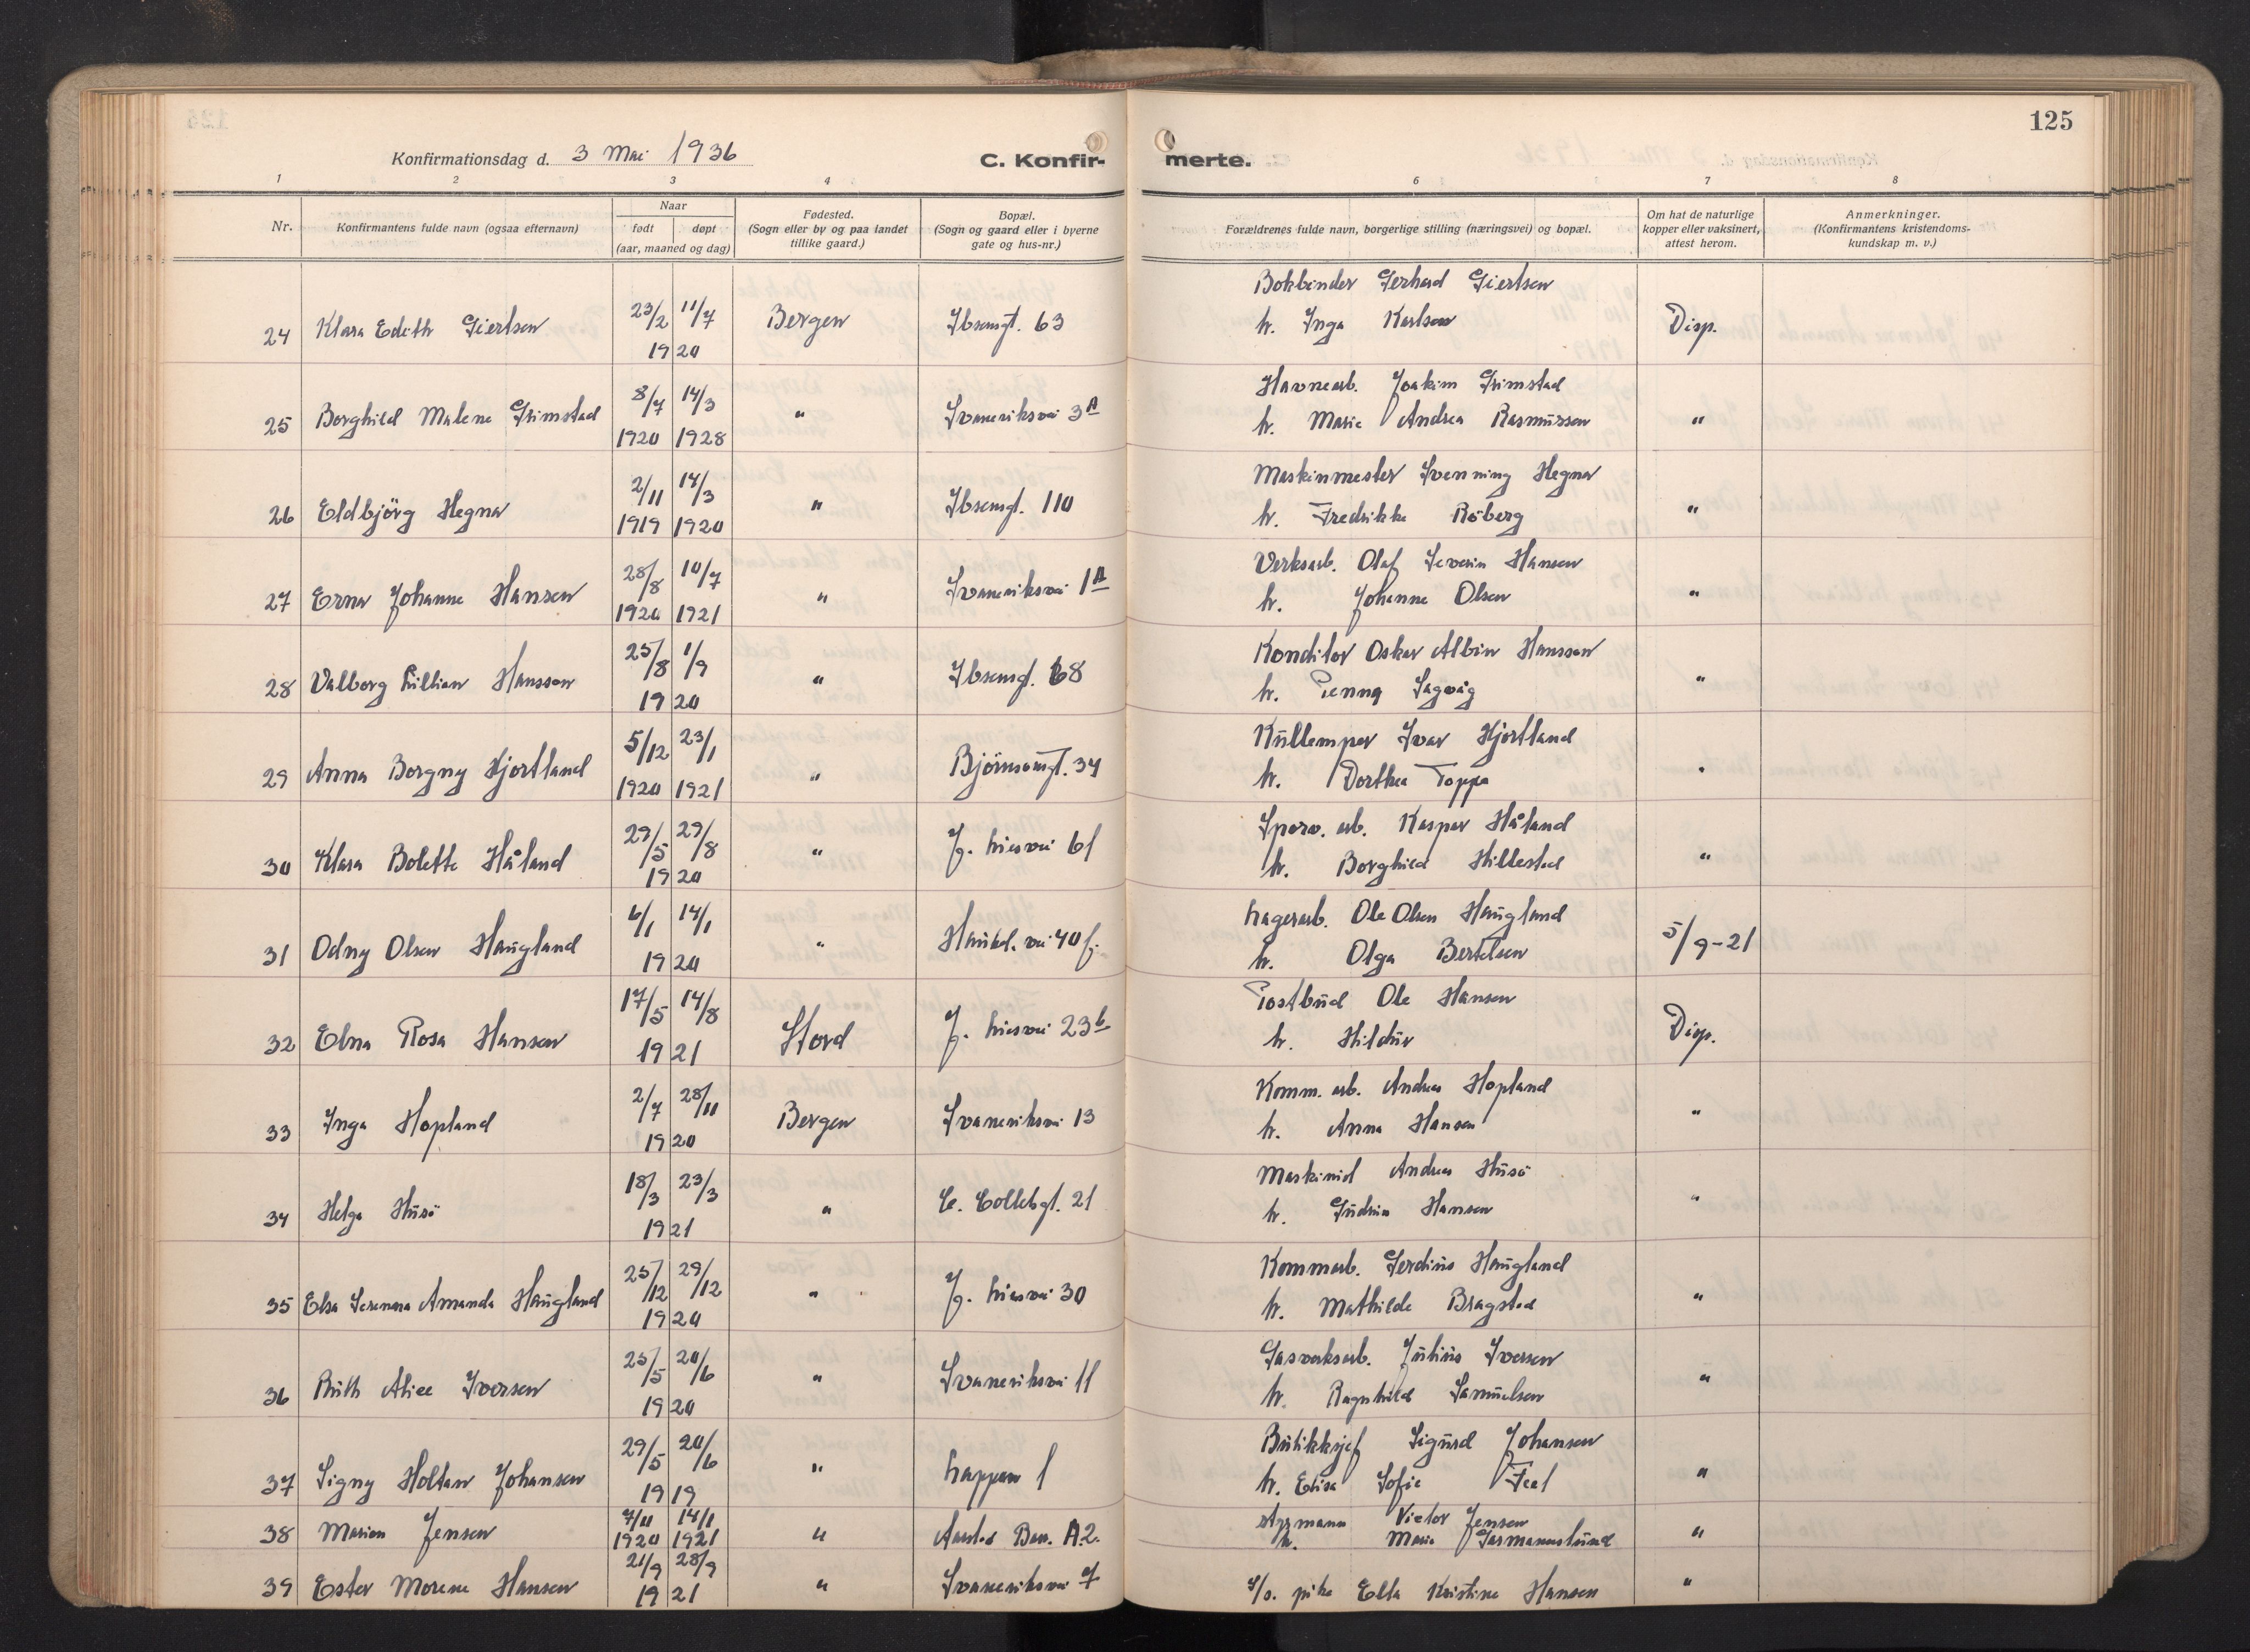 125
Konfirmationsdag d. 3 Mai 1936
C. Konfir- merte.
1 2 3 4 6 7 8
Nr.
Konfirmantens fulde navn (ogsaa efternavn)
Naar
født døpt
(aar, maaned og dag)
Fødested.
(Sogn eller by og paa landet
tillike gaard.)
Bopæl.
(Sogn og gaard eller i byerne
gate og hus-nr.)
Forældrenes fulde navn, borgerlige stilling (næringsvei) og bopæl.
Om hat de naturlige
kopper eller vaksinert,
attest herom.
Anmerkninger.
(Konfirmantens kristendoms-
kundskap m. v.)
Bokbinder Gerhard Giertsen
24 Klara Edith Giertsen 23/2 11/7 Bergen Ibsensgt. 63 h. Inga Karlsen Disp.
1920
Havnearb. Joakim Grimstad
25 Borghild Malene Grimstad 8/7 14/3 " Svaneviksvei 3A h. Marie Andrea Rasmussen "
1920 1928
Maskinmester Svenning Hegna
26 Eldbjörg Hegna 2/11 14/3 " Ibsensgt. 110 h. Fredrikke Röberg "
1919 1920
Verksarb. Olaf Severin Hansen
27 Erna Johanne Hansen 28/8 10/7 " Svaneviksvei 1A h. Johanne Olsen "
1920 1921
Konditor Oskar Albin Hansson
28 Valborg Lillian Hansson 25/8 1/9 " Ibsensgt. 68 h. Sagvåg "
1920
Kullemper Ivar Hjortland
29 Anna Borgny Hjortland 5/12 23/1 " Björnsonsgt. 34 h. Dorthea Toppe "
1920 1921
Sporv. arb. Kaspar Håland
30 Klara Bolette Håland 29/5 29/8 " J. Liesvei 61 h. Borghild Hillestad "
1920
Lagerarb. Ole Olsen Haugland
31 Odny Olsen Haugland 6/1 14/1 " Haukel. vei 40 f. h. Olga Bertelsen 5/9-21
1920
Postbud Ole Hansen
32 Elna Rosa Hansen 17/5 14/8 Stord J. Liesvei 23b h. Hildur Disp.
1921
Komm. arb. Andreas Hopland
33 Inga Hopland 2/7 28/11 Bergen Svaneviksvei 13 h. Anna Hansen "
1920
Maskinist Andreas Husö
34 Helga Husö 18/3 23/3 " C. Collettsgt. 21 h. Gudrun Hansen "
1921
Kommarb. Gerdius Haugland
35 Elsa Amanda Haugland 25/12 29/12 " J. Liesvei 30 h. Mathilde Bragstad "
1920
Gasverksarb. Julius Iversen
36 Ruth Alice Iversen 25/5 20/6 " Svaneviksvei 11 h. Ragnhild Samuelsen "
1920
Butikksjef Sigurd Johansen
37 Signy Holtan Johansen 29/5 20/6 " Lappen 1 h. Elisa Sofie "
1919
38 Marion Jensen 7/11 14/1 " Aarstad Bar. A.2. Victor Jensen "
1920 1921 h. Marie
39 Ester Morene Hansen 21/9 28/9 " Svaneviksvei u/o. pike Ella Kristine Hansen "
1921